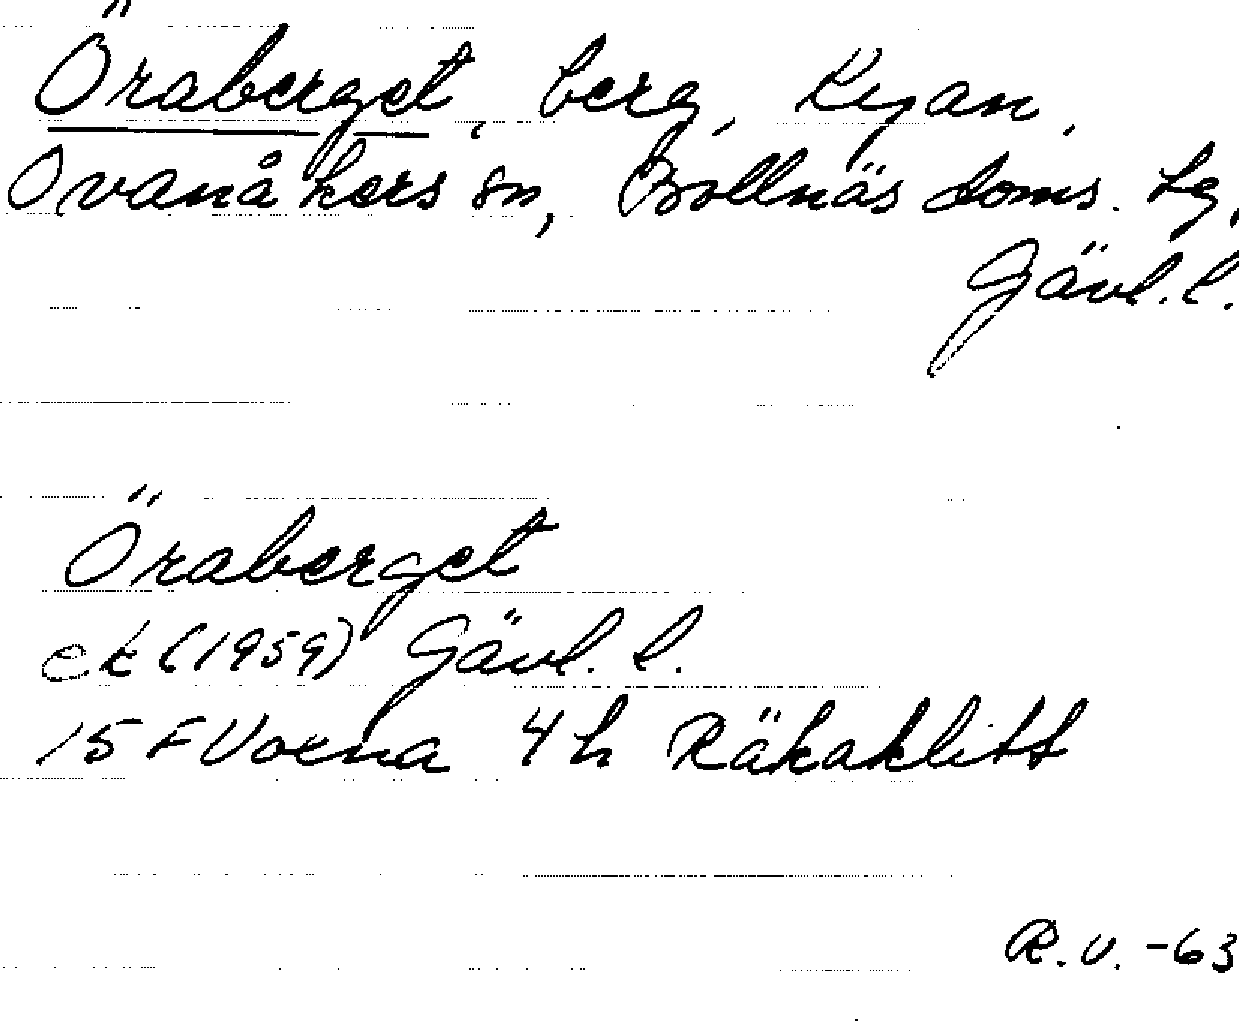 Öraberget, berg, Ryan,
Ovanåkers sn, Bollnäs doms. lg,
Gävl. l.
Öraberget
ek (1959) Gävl. l.
15 F Voxna 4h Räkaklitt
R.V. -63